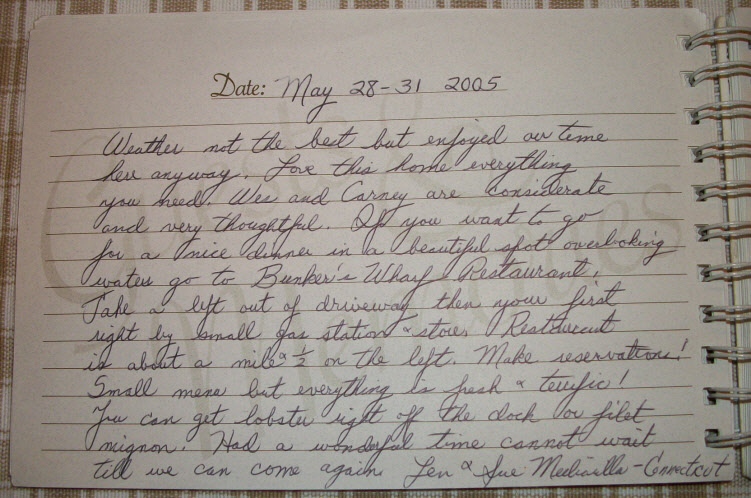 Date: May 28-31 2005
Weather not the best but enjoyed our time
here anyway. Love this home everything
you need. Wes and Carney are considerate
and very thoughtful. If you want to go
for a nice dinner in a beautiful spot overlooking
water go to Bunker's Wharf Restaurant.
Take a left out of driveway then your first
right by small gas station & store. Restaurant
is about a mile & 1/2 on the left. Make reservations!
Small menu but everything is fresh & terrific!
You can get lobster right off the dock or filet
mignon. Had a wonderful time cannot wait
till we can come again. Len & Sue - Connecticut